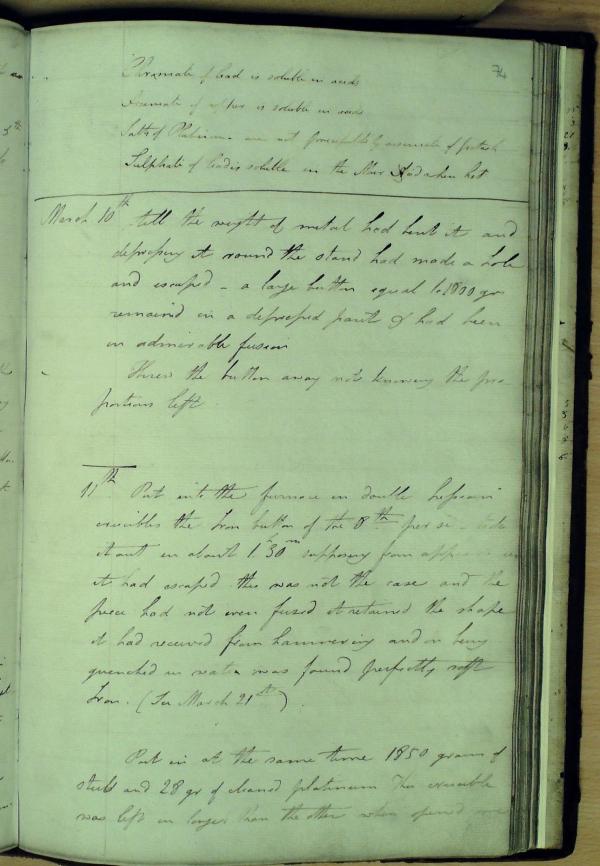 74
Chromate of lead is soluble in acids
Arseniate of is soluble in acids
Salts of Platinum are not precipitated by arseniate of potash
Sulphate of lead is soluble in the Mur Acid when hot
March 10th till the weight of metal had bent it and
depressing it round the stand had made a hole
and escaped - a large button equal to 1800 gr
remained in a depressed part & had been
in admirable fusion
Threw the button away not knowing the pro
portions left
11th Put into the furnace in double hessian
crucibles the Iron button of the 8th per se
it out in about 1h 30m supposing from
it had escaped this was not the case and the
piece had not even fused it retained the shape
it had received from hammering and on being
quenched in water was found perfectly soft
Iron. (See March 21st)
Put in at the same time 1850 grains of
steel and 28 gr of cleaned platinum This crucible
was left in longer than the other when opened